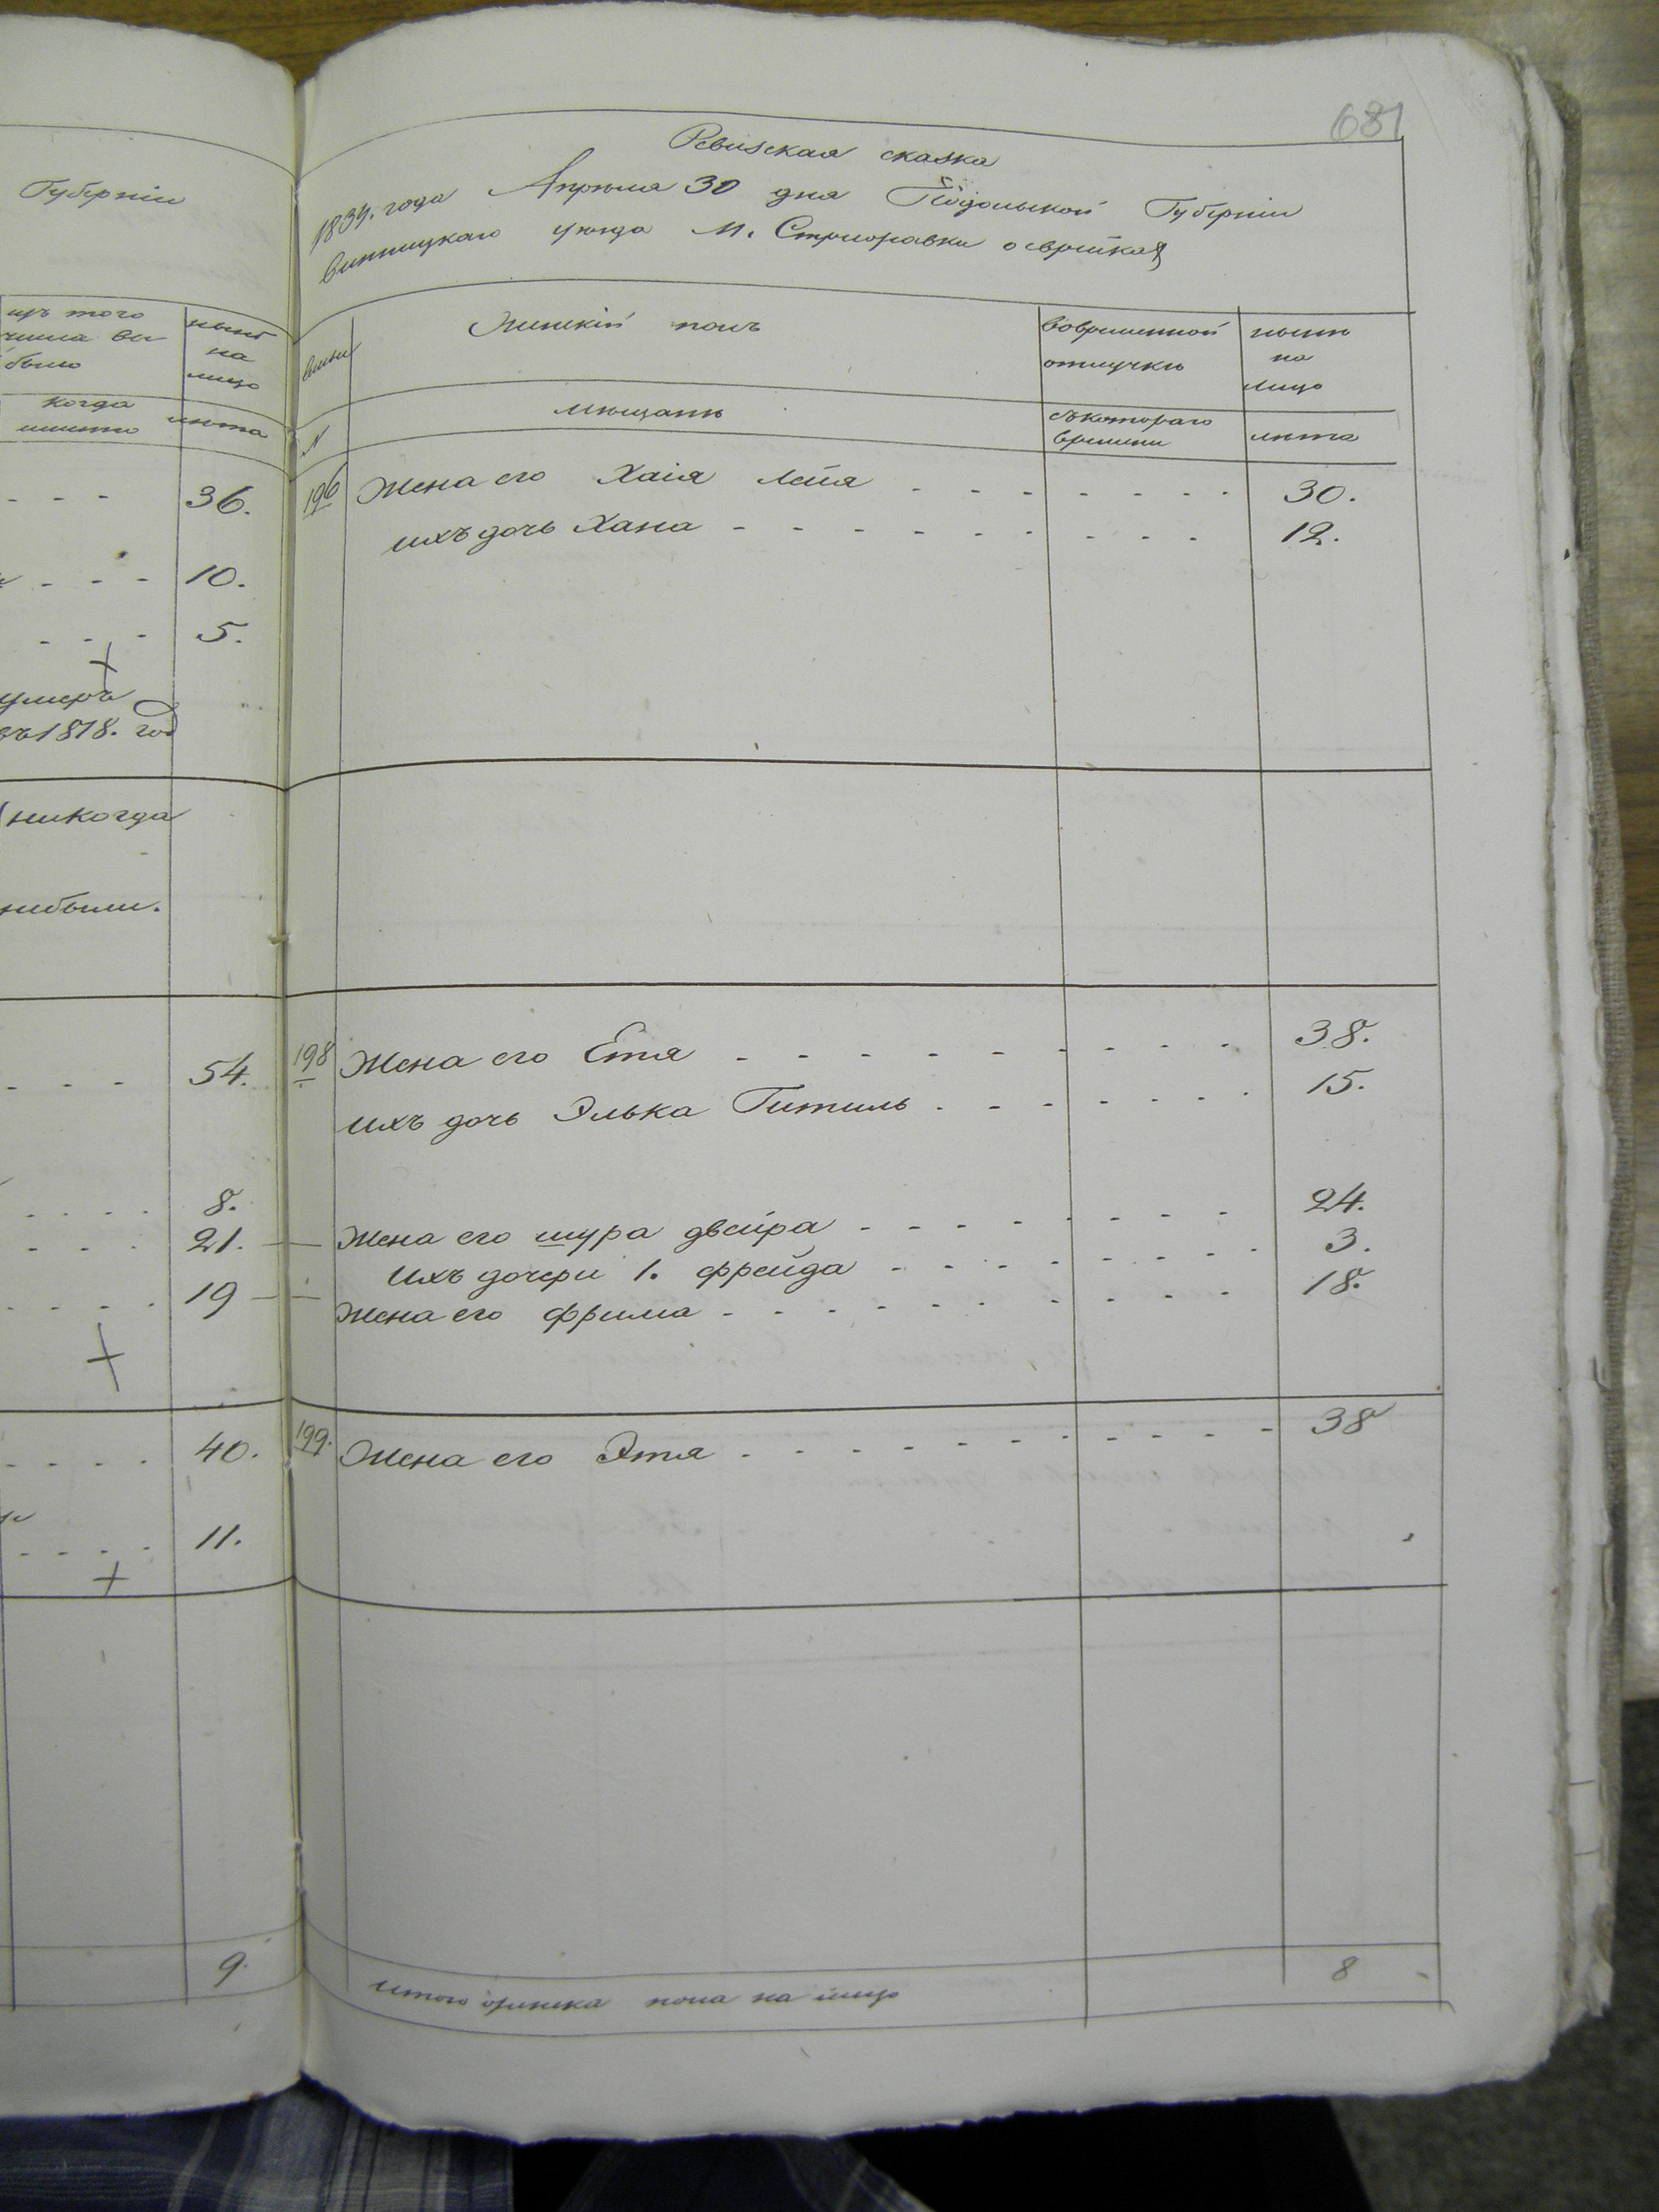 Губерніи
изъ того
числа вы
было
нынѣ
на
лицо
когда
именно
лѣта
36.
10.
5.
умеръ
въ 1818. год
никогда
небыли.
54.
8.
21.
19
40.
11.
9.
681
Ревизская сказка
1834. года Апрѣля 30 дня Подольской Губерніи
Винницкаго уѣзда М. Стрижавки о еврейкахъ
семьи
Женскій полъ
вовременной
отлучкѣ
нынѣ
на
лицо
N
мѣщанѣ
съкотораго
времени
лѣта
196 Жена его Хаія Лейя 30.
ихъ дочь Хана 12.
198 Жена его Етя 38.
ихъ дочь Элька Гитиль 15.
Жена его шура двейра 24.
Ихъ дочери 1. фрейда 3.
Жена его фрима 18.
199. Жена его Этя 38
итого женска пола на лицо 8